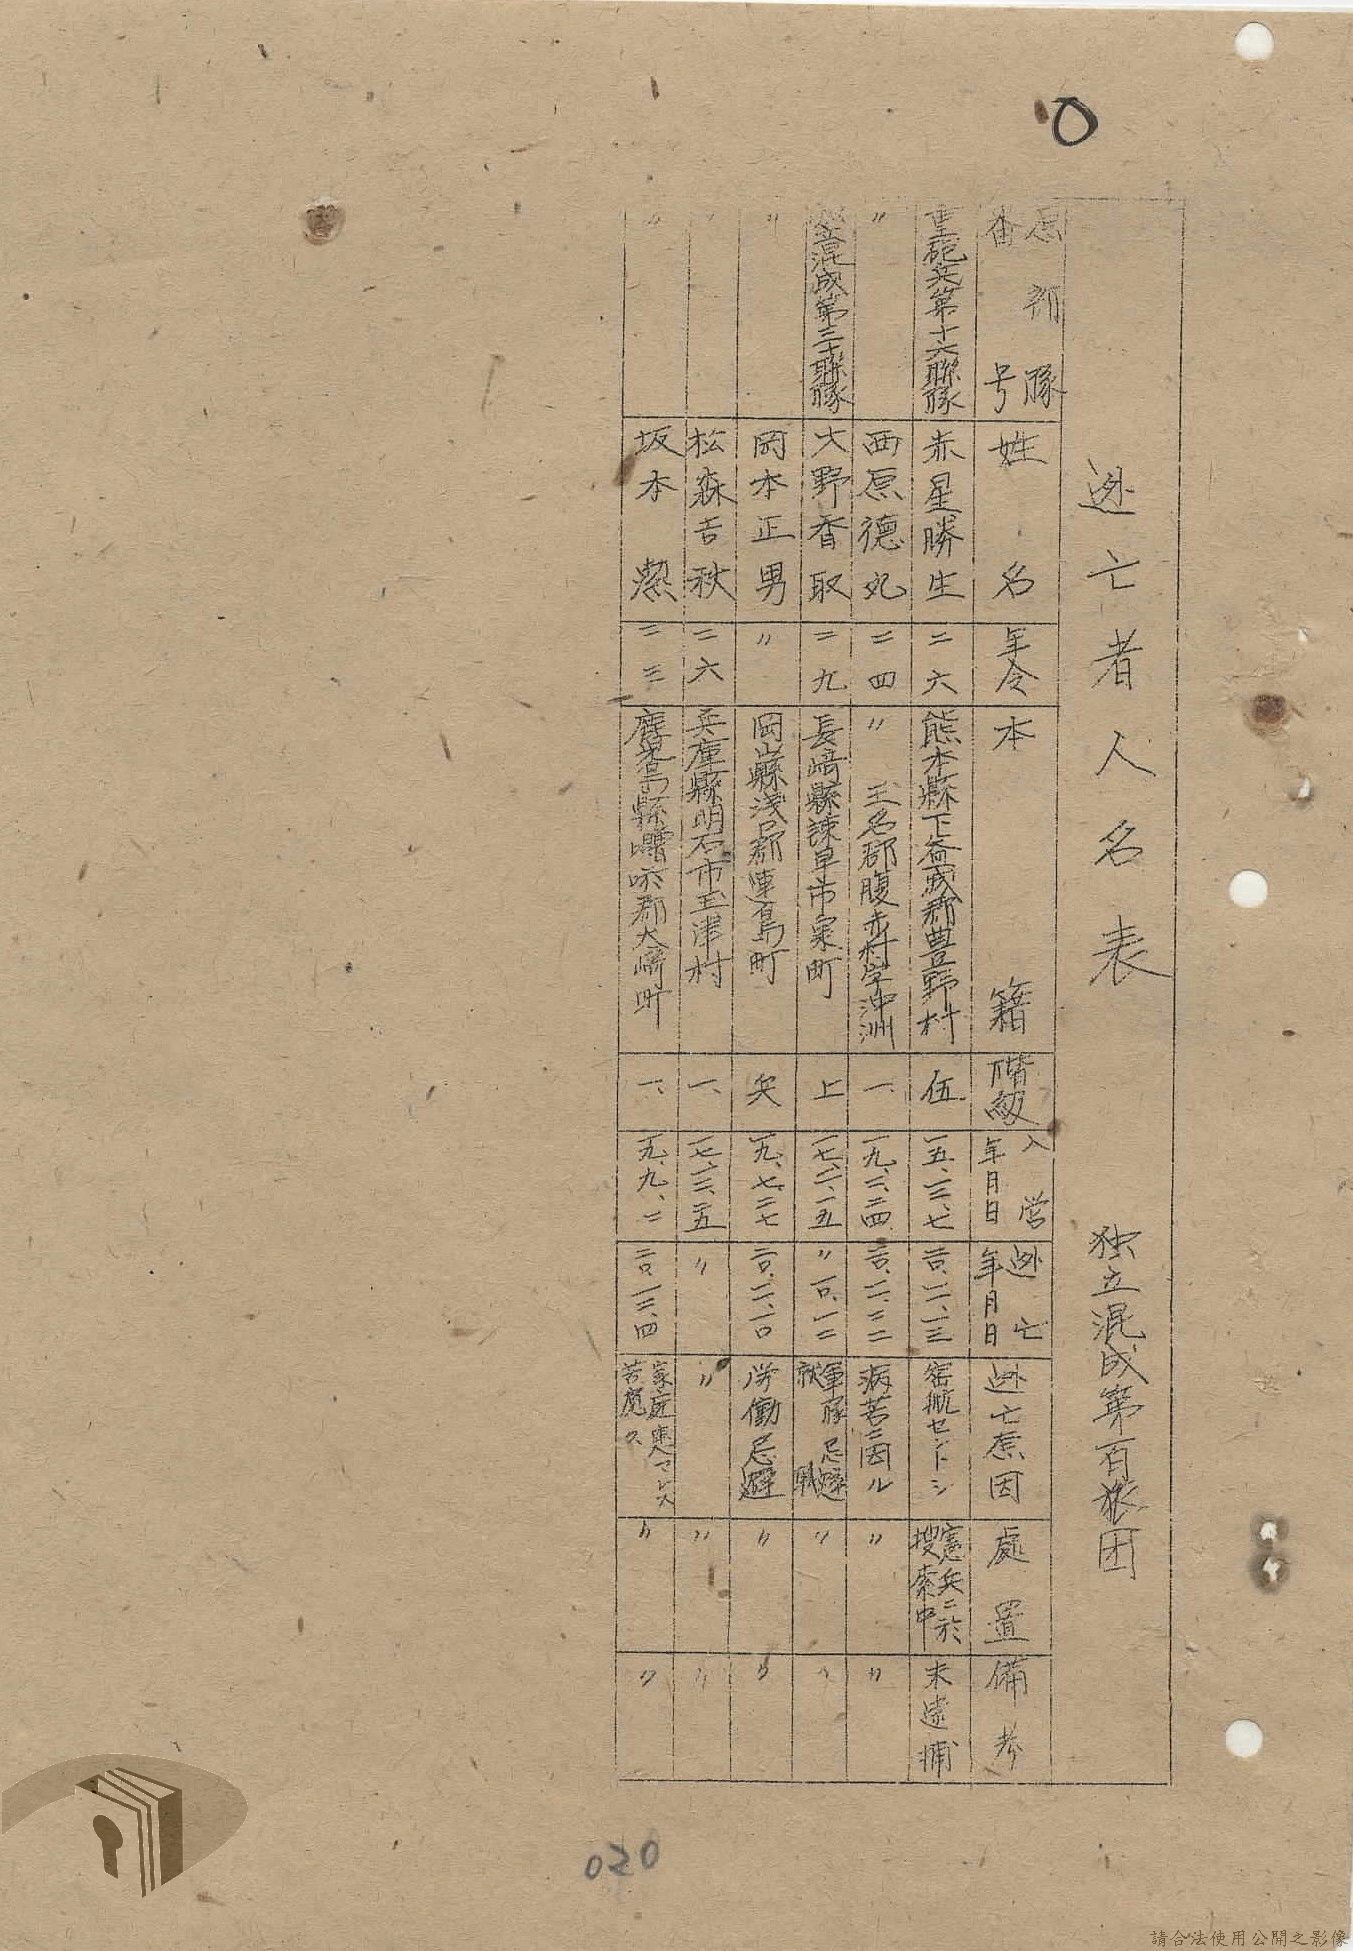 逃亡者人名表 独立混成第百旅団
原所隊
番号
姓名
年令
本籍
階級
入営
年月日
逃亡
年月日
逃亡原因
處置
備考
重砲兵第十六聯隊
赤星勝生
二六
熊本縣下益城郡豊野村
伍
一五、一二、七
二〇、一一、一三
密航セントシ
憲兵ニ於
捜索中
未逮捕
〃
西原德丸
二四
〃 玉名郡腹赤村字沖洲
一、
一九、三、二四
二〇、一一、二二
病苦ニ因ル
〃
〃
独立混成第三十聯隊
大野香取
二九
長崎縣諫早市泉町
上
一七、二、一五
〃 一〇、一二
軍隊忌避
〃
〃
〃
岡本正男
〃
岡山縣浅口郡連島町
兵
一九、七、二七
二〇、一一、一〇
労働忌避
〃
〃
〃
松森吉秋
二六
兵庫縣明石市玉津村
一、
〃
〃
〃
〃
〃
坂本潔
二三
鹿児島縣囎唹郡大崎町
一、
一九、九、二
二〇、一二、四
〃
〃
020
請合法使用公開之影像